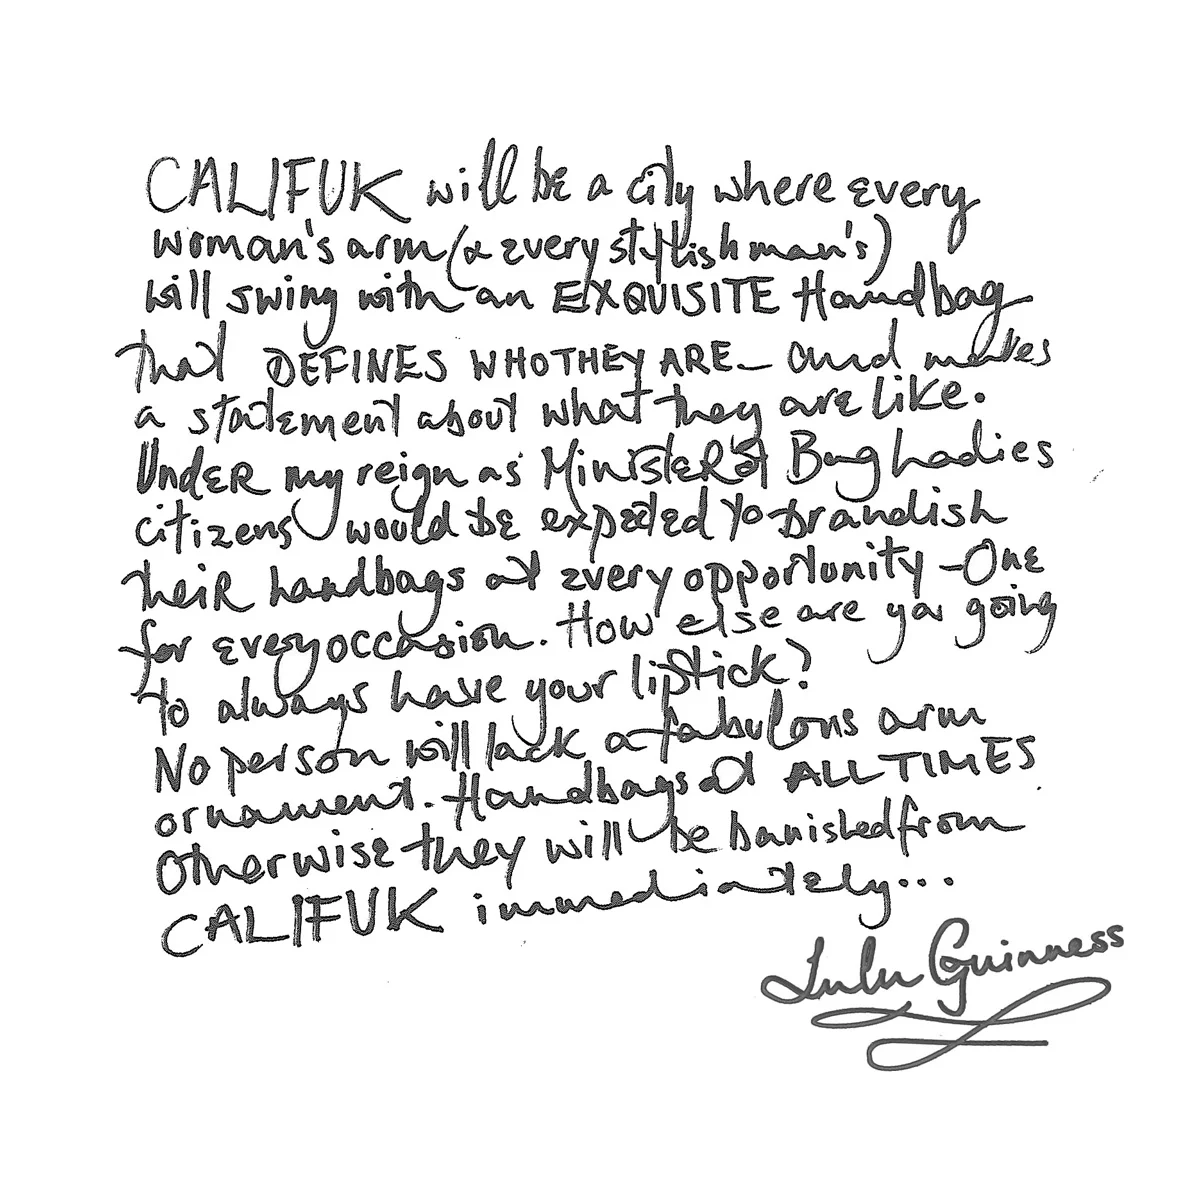 CALIFUK will be a city where every
woman's arm (& every stylish man's)
will swing with an EXQUISITE Handbag
that DEFINES WHO THEY ARE — and makes
a statement about what they are like.
UNDER my reign as MINISTER of Bag Ladies
citizens would be expected to brandish
their handbags at every opportunity - One
for every occasion. How else are you going
to always have your lipstick?
No person will lack a fabulous arm
ornament. Handbags at ALL TIMES
otherwise they will be banished from
CALIFUK immediately...
Lulu Guinness